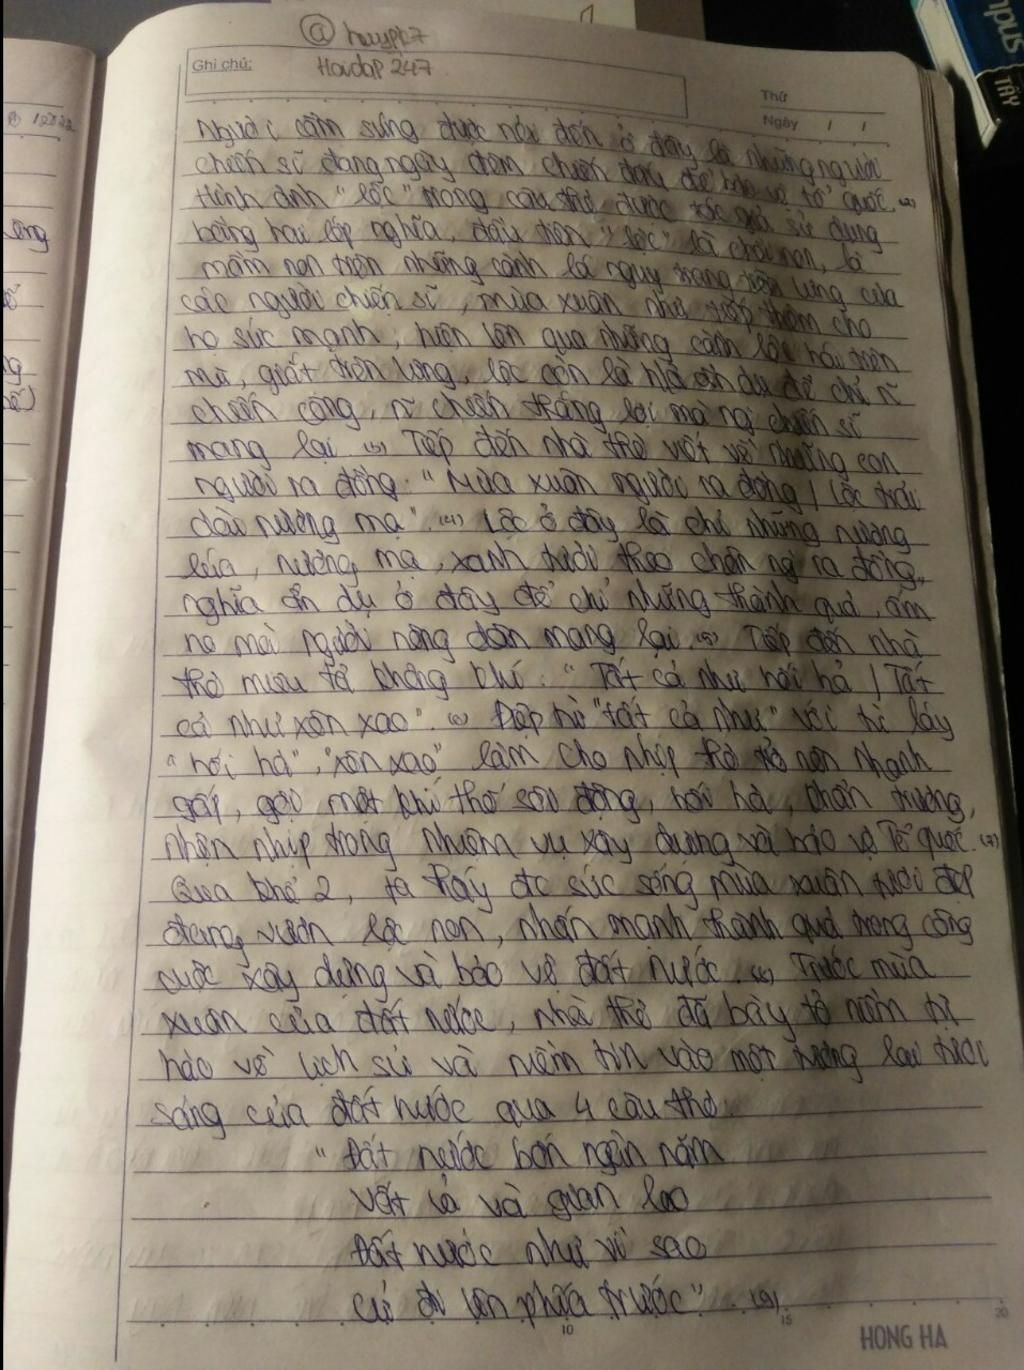 @ huypk7
Ghi chú: Hoidap 247
Thứ
Ngày / /
Người cầm súng được nói đến ở đây là những người
chiến sĩ đang ngày đêm chiến đấu để bảo vệ tổ quốc. (2)
Hình ảnh "lộc" trong câu thơ được tác giả sử dụng
bằng hai lớp nghĩa, đầu tiên "lộc" là chồi non, là
mầm non trên những cành lá ngụy trang trên lưng của
các người chiến sĩ, mùa xuân như tiếp thêm cho
họ sức mạnh, hiện lên qua những cành lộc hái trên
mũ, giắt trên lưng, lộc còn là h/a ẩn dụ để chỉ n~
chiến công, n~ chiến thắng lợi mà ng` chiến sĩ
mang lại (3) Tiếp đến nhà thơ viết về những con
người ra đồng: "Mùa xuân người ra đồng / Lộc trải
dài nương mạ". (4) Lộc ở đây là chỉ những nương
lúa, nương mạ, xanh tươi theo chân ng` ra đồng,
nghĩa ẩn dụ ở đây để chỉ những thành quả, ấm
no mà người nông dân mang lại. (5) Tiếp đến nhà
thơ miêu tả không khí: "Tất cả như hối hả / Tất
cả như xôn xao". (6) Điệp từ "tất cả như" với từ láy
"hối hả", "xôn xao" làm cho nhịp thơ trở nên nhanh
gấp, gợi một khí thế sôi động, hối hả, khẩn trương,
nhộn nhịp trong nhiệm vụ xây dựng và bảo vệ Tổ quốc. (7)
Qua khổ 2, ta thấy đc sức sống mùa xuân tươi đẹp
đang vươn lộc non, nhấn mạnh thành quả trong công
cuộc xây dựng và bảo vệ đất nước. (8) Trước mùa
xuân của đất nước, nhà thơ đã bày tỏ niềm tự
hào về lịch sử và niềm tin vào một tương lai tươi
sáng của đất nước qua 4 câu thơ:
"Đất nước bốn ngàn năm
Vất vả và gian lao
Đất nước như vì sao
Cứ đi lên phía trước". (9)
10 15 20
HONG HA